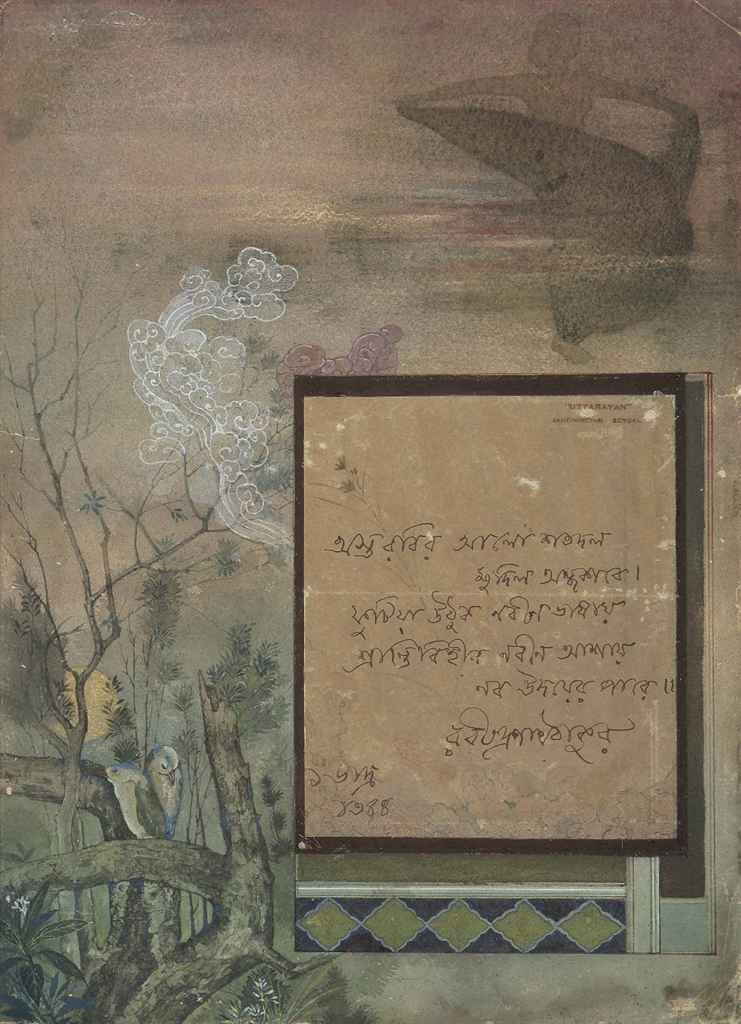 "UTTARAYAN"
SANTINIKETAN BENGAL
অস্তরবির আলো শতদল
মুদিল অন্ধকারে।
ফুটিয়া উঠুক নবীন ভাষায়
শ্রান্তিবিহীন নবীন আশায়
নব উদয়ের পারে॥
রবীন্দ্রনাথ ঠাকুর
১ ভাদ্র
১৩৪৪